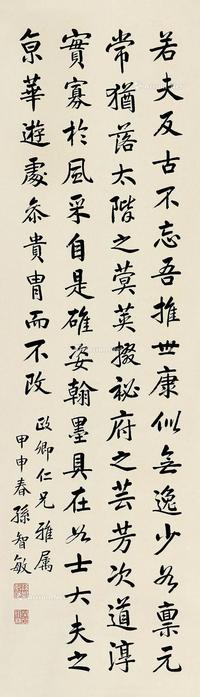 若夫反古不忘吾推世康似無逸少為稟元
常猶落太階之蓂英掇祕府之芸芳次道淳
實寡於風采自是碓姿翰墨具在為士大夫之
京華遊處忝貴胄而不改
政卿仁兄雅属
甲申春孫智敏